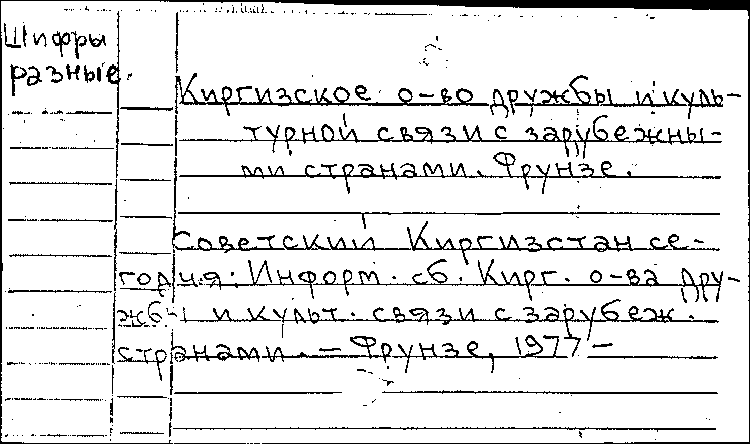 Шифры
разные.
Киргизское о-во дружбы и куль-
турной связи с зарубежны-
ми странами. Фрунзе.
Советский Киргизстан се-
годня: Информ. сб. Кирг. о-ва дру-
жбы и культ. связи с зарубеж.
странами. – Фрунзе, 1977 –